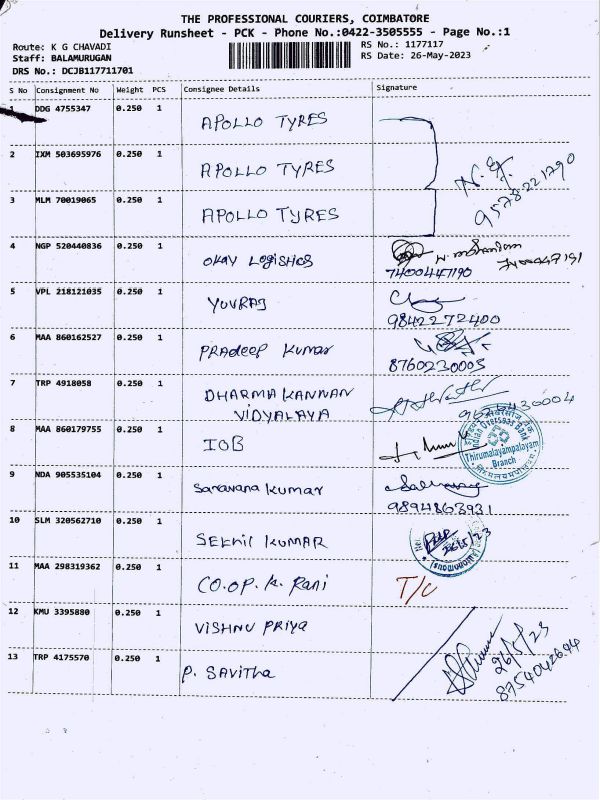 THE PROFESSIONAL COURIERS, COIMBATORE
Delivery Runsheet - PCK - Phone No.:0422-3505555 - Page No.:1
Route: K G CHAVADI
RS No.: 1177117
Staff: BALAMURUGAN
RS Date: 26-May-2023
DRS No.: DCJB117711701
S No Consignment No Weight PCS Consignee Details Signature
DDG 4755347 0.250 1 APOLLO TYRES
2 IXM 503695976 0.250 1 APOLLO TYRES
9578221790
3 MLM 70019065 0.250 1 APOLLO TYRES
4 NGP 520440836 0.250 1 OKAY LOGISHCS
7400447190
5 VPL 218121035 0.250 1 YUVRAJ
9842272400
6 MAA 860162527 0.250 1 PRADEEP KUMAR
8760230005
7 TRP 4918058 0.250 1 DHARMA KANNAN
VIDYALAYA
8 MAA 860179755 0.250 1 IOB
Indian Overseas Bank
Thirumalayampalayam
Branch
9 NDA 905535104 0.250 1 Saravana Kumar
9894863931
10 SLM 320562710 0.250 1 SEKHIL KUMAR
26/5/23
11 MAA 298319362 0.250 1 CO.OP.K. Rani T/C
12 KMU 3395880 0.250 1 VISHNU PRIYA
13 TRP 4175570 0.250 1 P. SAVITHA
26/5/23